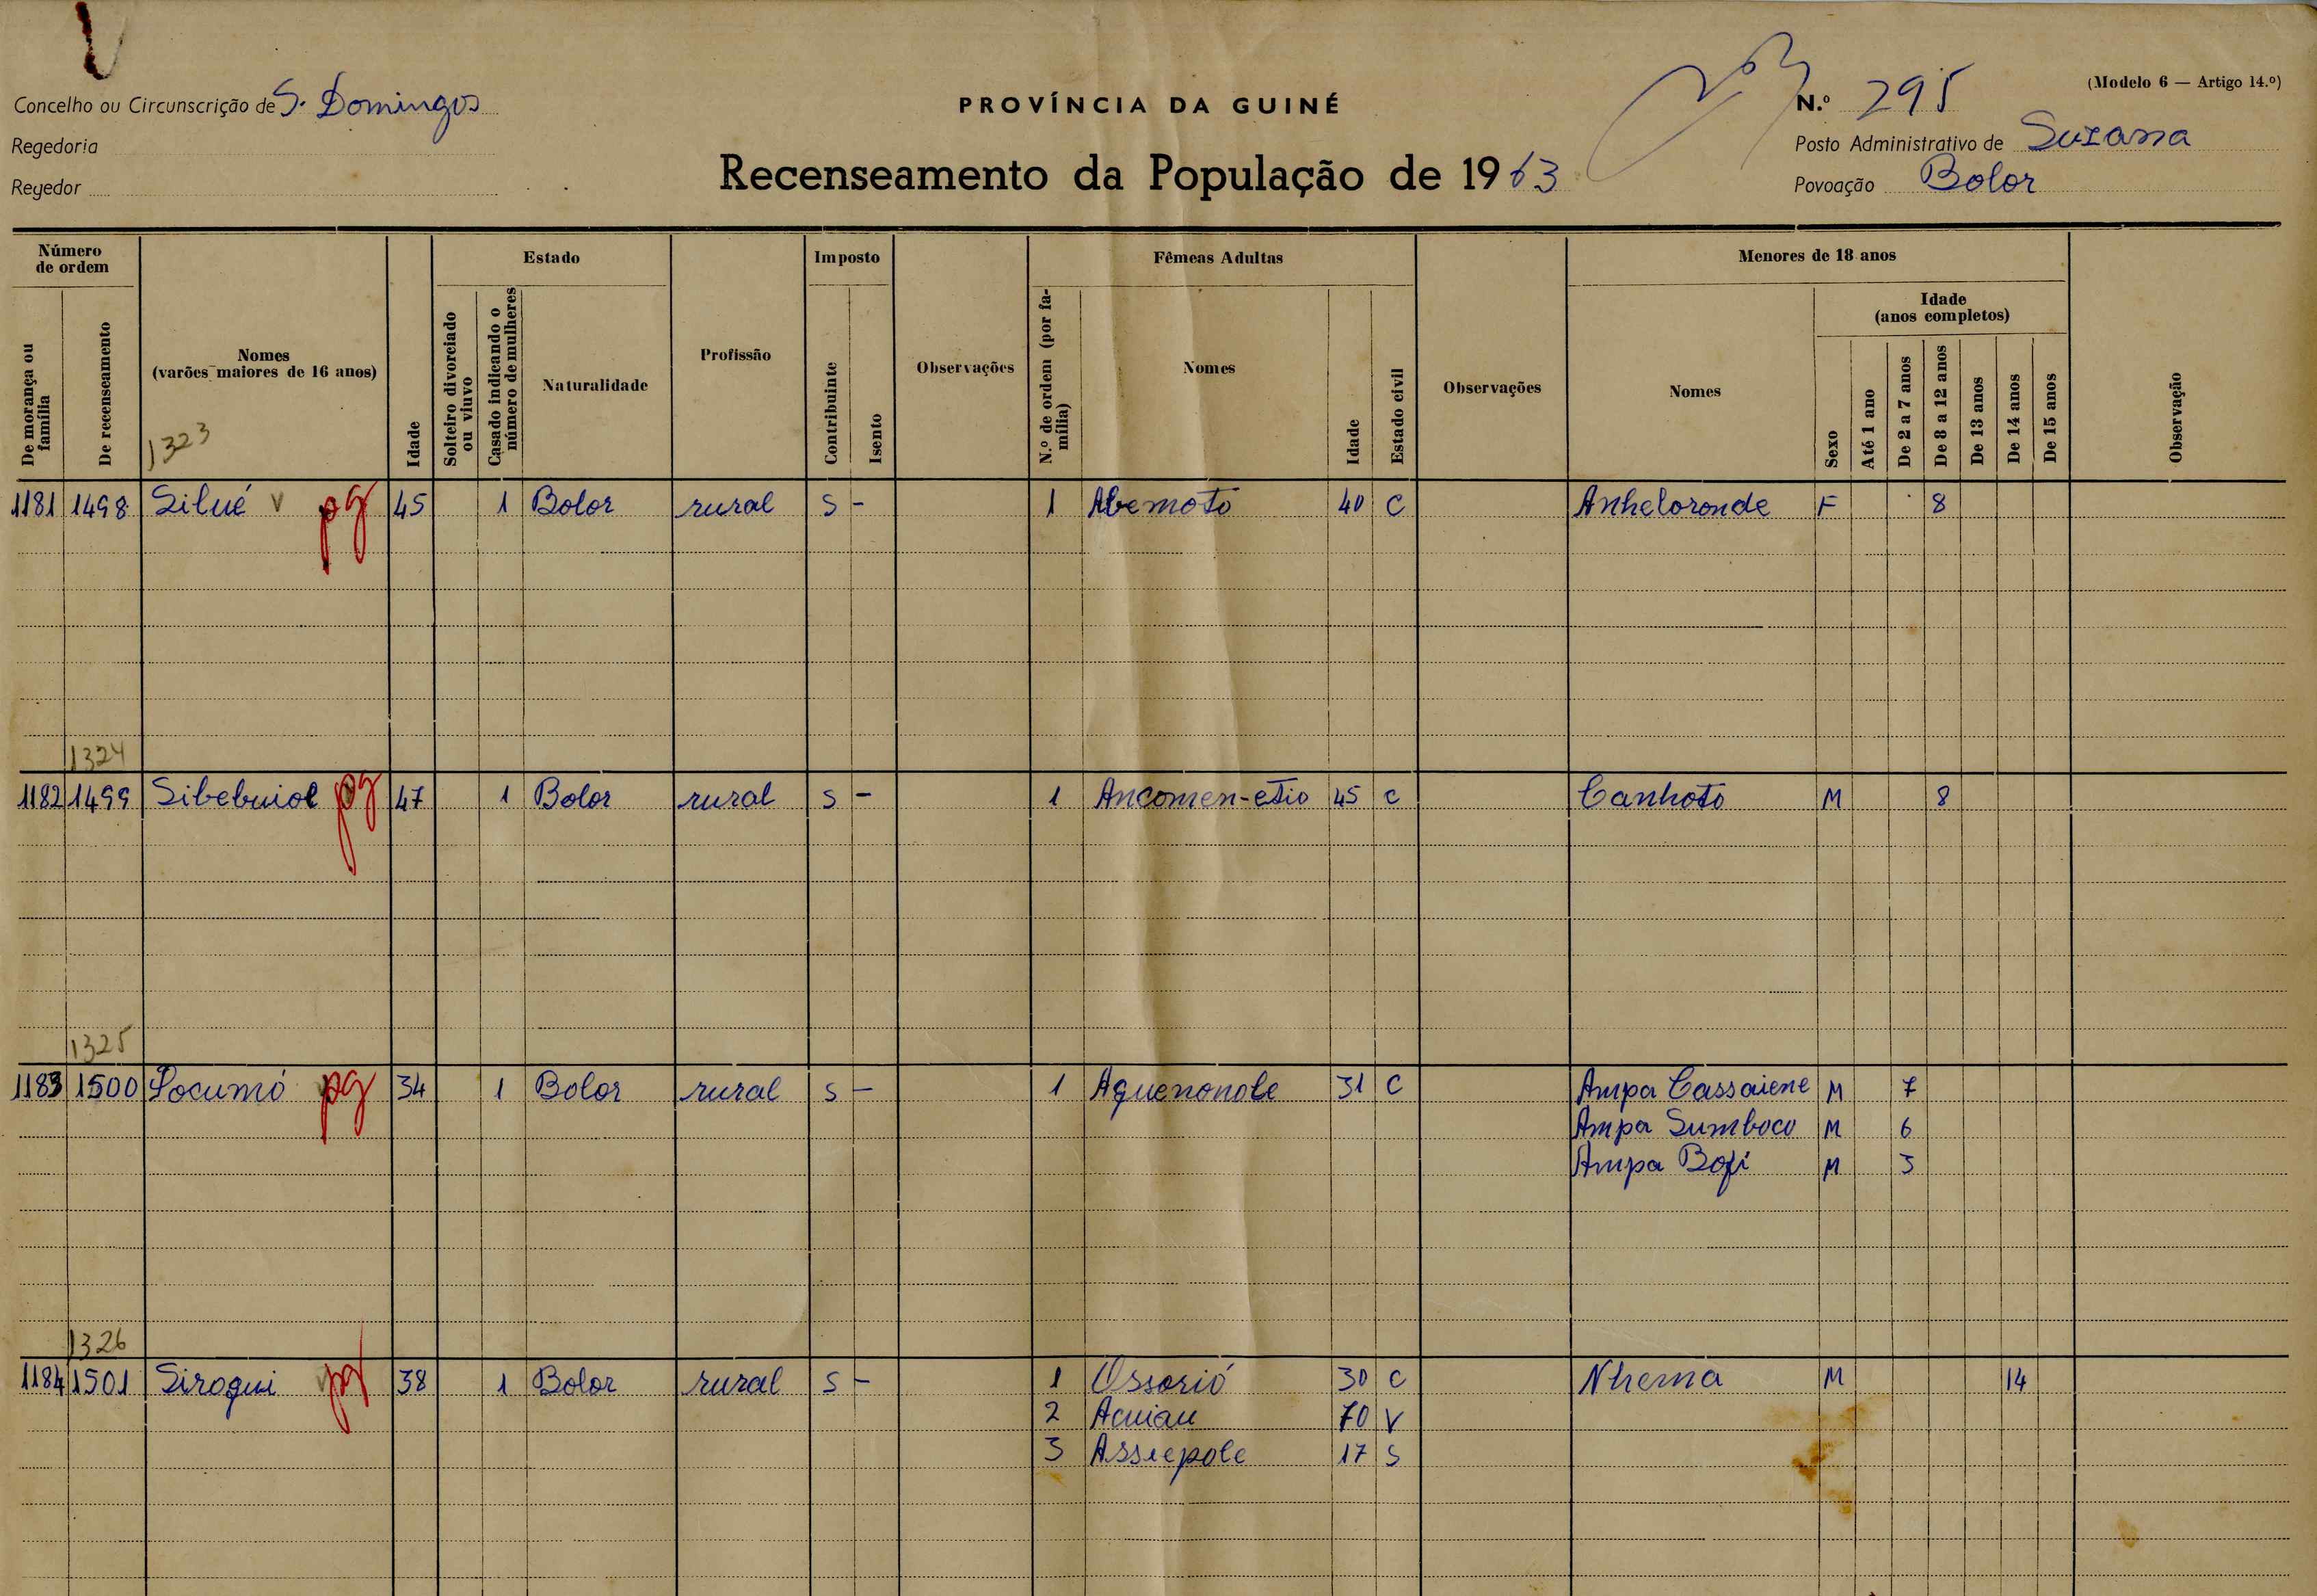 (Modelo 6 — Artigo 14.º)
Concelho ou Circunscrição de S. Domingos
PROVÍNCIA DA GUINÉ
N.º 295
Regedoria
Posto Administrativo de Suzana
Regedor
Recenseamento da População de 1963
Povoação Bolor
Número de ordem
Estado
Imposto
Fêmeas Adultas
Menores de 18 anos
De morança ou família
De recenseamento
Nomes
(varões maiores de 16 anos)
1323
Idade
Solteiro divorciado ou viuvo
Casado indicando o número de mulheres
Naturalidade
Profissão
Contribuinte
Isento
Observações
N.º de ordem (por família)
Nomes
Idade
Estado civil
Observações
Nomes
Sexo
Idade
(anos completos)
Até 1 ano
De 2 a 7 anos
De 8 a 12 anos
De 13 anos
De 14 anos
De 15 anos
Observação
1181 1498 Silué v pg 45 1 Bolor rural s - 1 Abemoto 40 C Anheloronde F 8
1324
1182 1499 Sibebuiol pg 47 1 Bolor rural s - 1 Ancomen-etio 45 c Canhoto M 8
1325
1183 1500 Socumó pg 34 1 Bolor rural s - 1 Aquenonole 31 C Ampa Cassaiene M 7
Ampa Sumboco M 6
Ampa Bofi M 3
1326
1184 1501 Sirogui pg 38 1 Bolor rural s - 1 Ossorió 30 C Nhema M 14
2 Acuiau 70 V
3 Assiepole 17 S